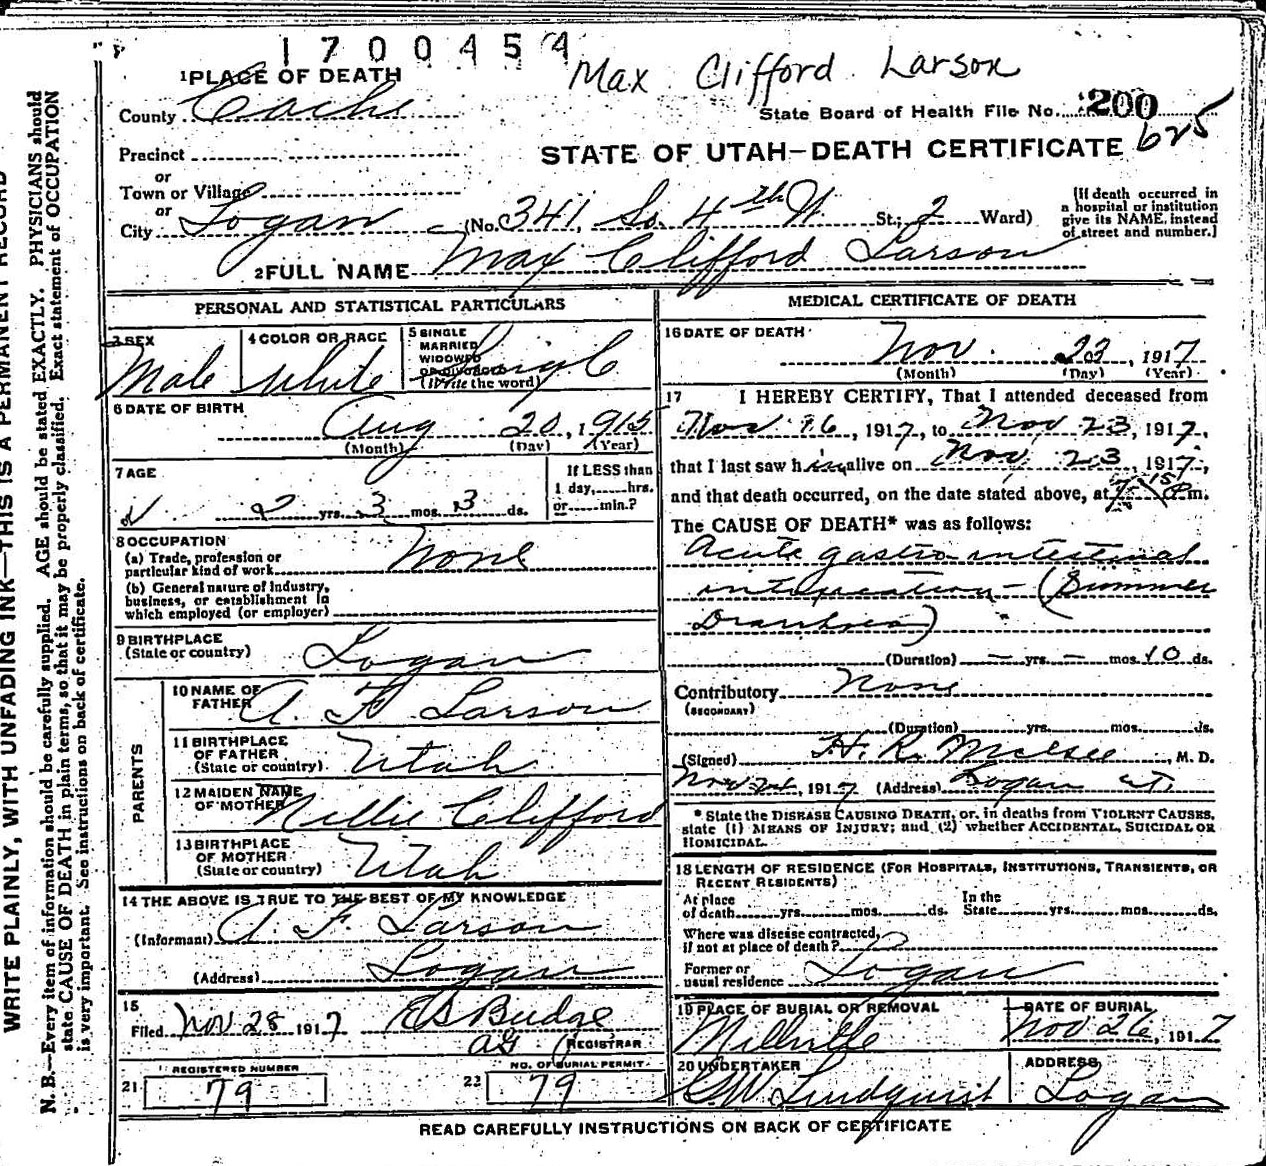 1700454
Max Clifford Larson
1 PLACE OF DEATH
County Cache
State Board of Health File No. 200
625
Precinct
or
Town or Village
or
City Logan (No. 341, So. 4th W. St.; 2 Ward)
STATE OF UTAH—DEATH CERTIFICATE
[If death occurred in
a hospital or institution
give its NAME, instead
of street and number.]
2 FULL NAME Max Clifford Larson
PERSONAL AND STATISTICAL PARTICULARS
3 SEX
Male
4 COLOR OR RACE
White
5 SINGLE
MARRIED
WIDOWED
OR DIVORCED
(Write the word)
Single
6 DATE OF BIRTH
Aug 20, 1915
(Month) (Day) (Year)
7 AGE
2 yrs. 3 mos. 3 ds.
If LESS than
1 day,......hrs.
or......min.?
8 OCCUPATION
(a) Trade, profession or
particular kind of work None
(b) General nature of Industry,
business, or establishment in
which employed (or employer)
9 BIRTHPLACE
(State or country) Logan
PARENTS
10 NAME OF
FATHER A. F. Larson
11 BIRTHPLACE
OF FATHER
(State or country) Utah
12 MAIDEN NAME
OF MOTHER Nellie Clifford
13 BIRTHPLACE
OF MOTHER
(State or country) Utah
14 THE ABOVE IS TRUE TO THE BEST OF MY KNOWLEDGE
(Informant) A. F. Larson
(Address) Logan
15
Filed Nov 28 1917 E S Budge
REGISTRAR
REGISTERED NUMBER
21 79
NO. OF BURIAL PERMIT
22 79
MEDICAL CERTIFICATE OF DEATH
16 DATE OF DEATH
Nov. 23, 1917
(Month) (Day) (Year)
17 I HEREBY CERTIFY, That I attended deceased from
Nov 16, 1917, to Nov 23, 1917,
that I last saw him alive on Nov 23 1917,
and that death occurred, on the date stated above, at 7:15 P.m.
The CAUSE OF DEATH* was as follows:
Acute gastro intestinal
intoxication - (Summer
Diarrhoea)
(Duration) — yrs. — mos. 10 ds.
Contributory None
(SECONDARY)
(Duration) yrs. mos. ds.
(Signed) H. R. McGee, M. D.
Nov 26, 1917 (Address) Logan UT.
* State the DISEASE CAUSING DEATH, or, in deaths from VIOLENT CAUSES,
state (1) MEANS OF INJURY; and (2) whether ACCIDENTAL, SUICIDAL OR
HOMICIDAL.
18 LENGTH OF RESIDENCE (FOR HOSPITALS, INSTITUTIONS, TRANSIENTS, OR
RECENT RESIDENTS)
At place
of death yrs. mos. ds.
In the
State yrs. mos. ds.
Where was disease contracted,
if not at place of death?
Former or
usual residence Logan
19 PLACE OF BURIAL OR REMOVAL
Millville
DATE OF BURIAL
Nov 26, 1917
20 UNDERTAKER
G W Lindquist
ADDRESS
Logan
READ CAREFULLY INSTRUCTIONS ON BACK OF CERTIFICATE
WRITE PLAINLY, WITH UNFADING INK—THIS IS A PERMANENT RECORD
N. B.—Every item of information should be carefully supplied. AGE should be stated EXACTLY. PHYSICIANS should
state CAUSE OF DEATH in plain terms, so that it may be properly classified. Exact statement of OCCUPATION
is very important. See instructions on back of certificate.